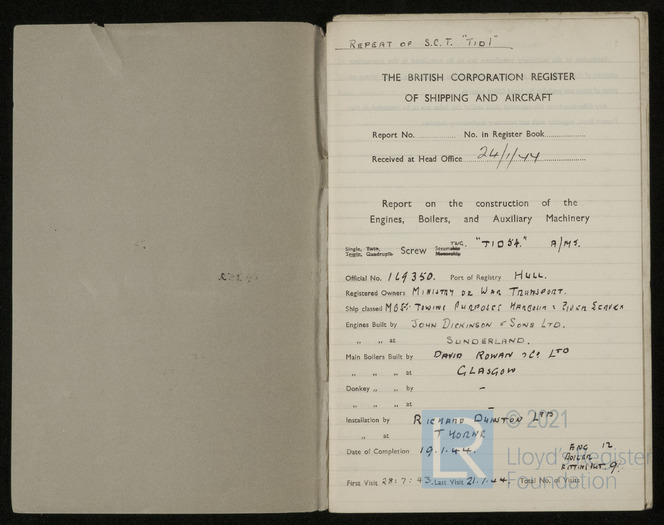 REPEAT OF S.C.T. "TID1"
THE BRITISH CORPORATION REGISTER
OF SHIPPING AND AIRCRAFT
Report No. No. in Register Book
Received at Head Office 24/1/44
Report on the construction of the
Engines, Boilers, and Auxiliary Machinery
Single, Twin, Triple, Quadruple Screw Steamship Motorship TUG. "TID 54." A/MS.
Official No. 169350. Port of Registry HULL.
Registered Owners MINISTRY OF WAR TRANSPORT.
Ship classed MBS* TOWING PURPOSES HARBOUR & RIVER SERVICE
Engines Built by JOHN DICKINSON & SONS LTD.
" " at SUNDERLAND.
Main Boilers Built by DAVID ROWAN & CO LTD
" " " at GLASGOW
Donkey " " by -
" " " at -
Installation by RICHARD DUNSTON LTD
" at THORNE
Date of Completion 19.1.44.
ENG 12
BOILER
FITTING &C. 9.
First Visit 28:7:43. Last Visit 21.1.44. Total No. of Visits
© 2021
Lloyd's Register
Foundation
LR